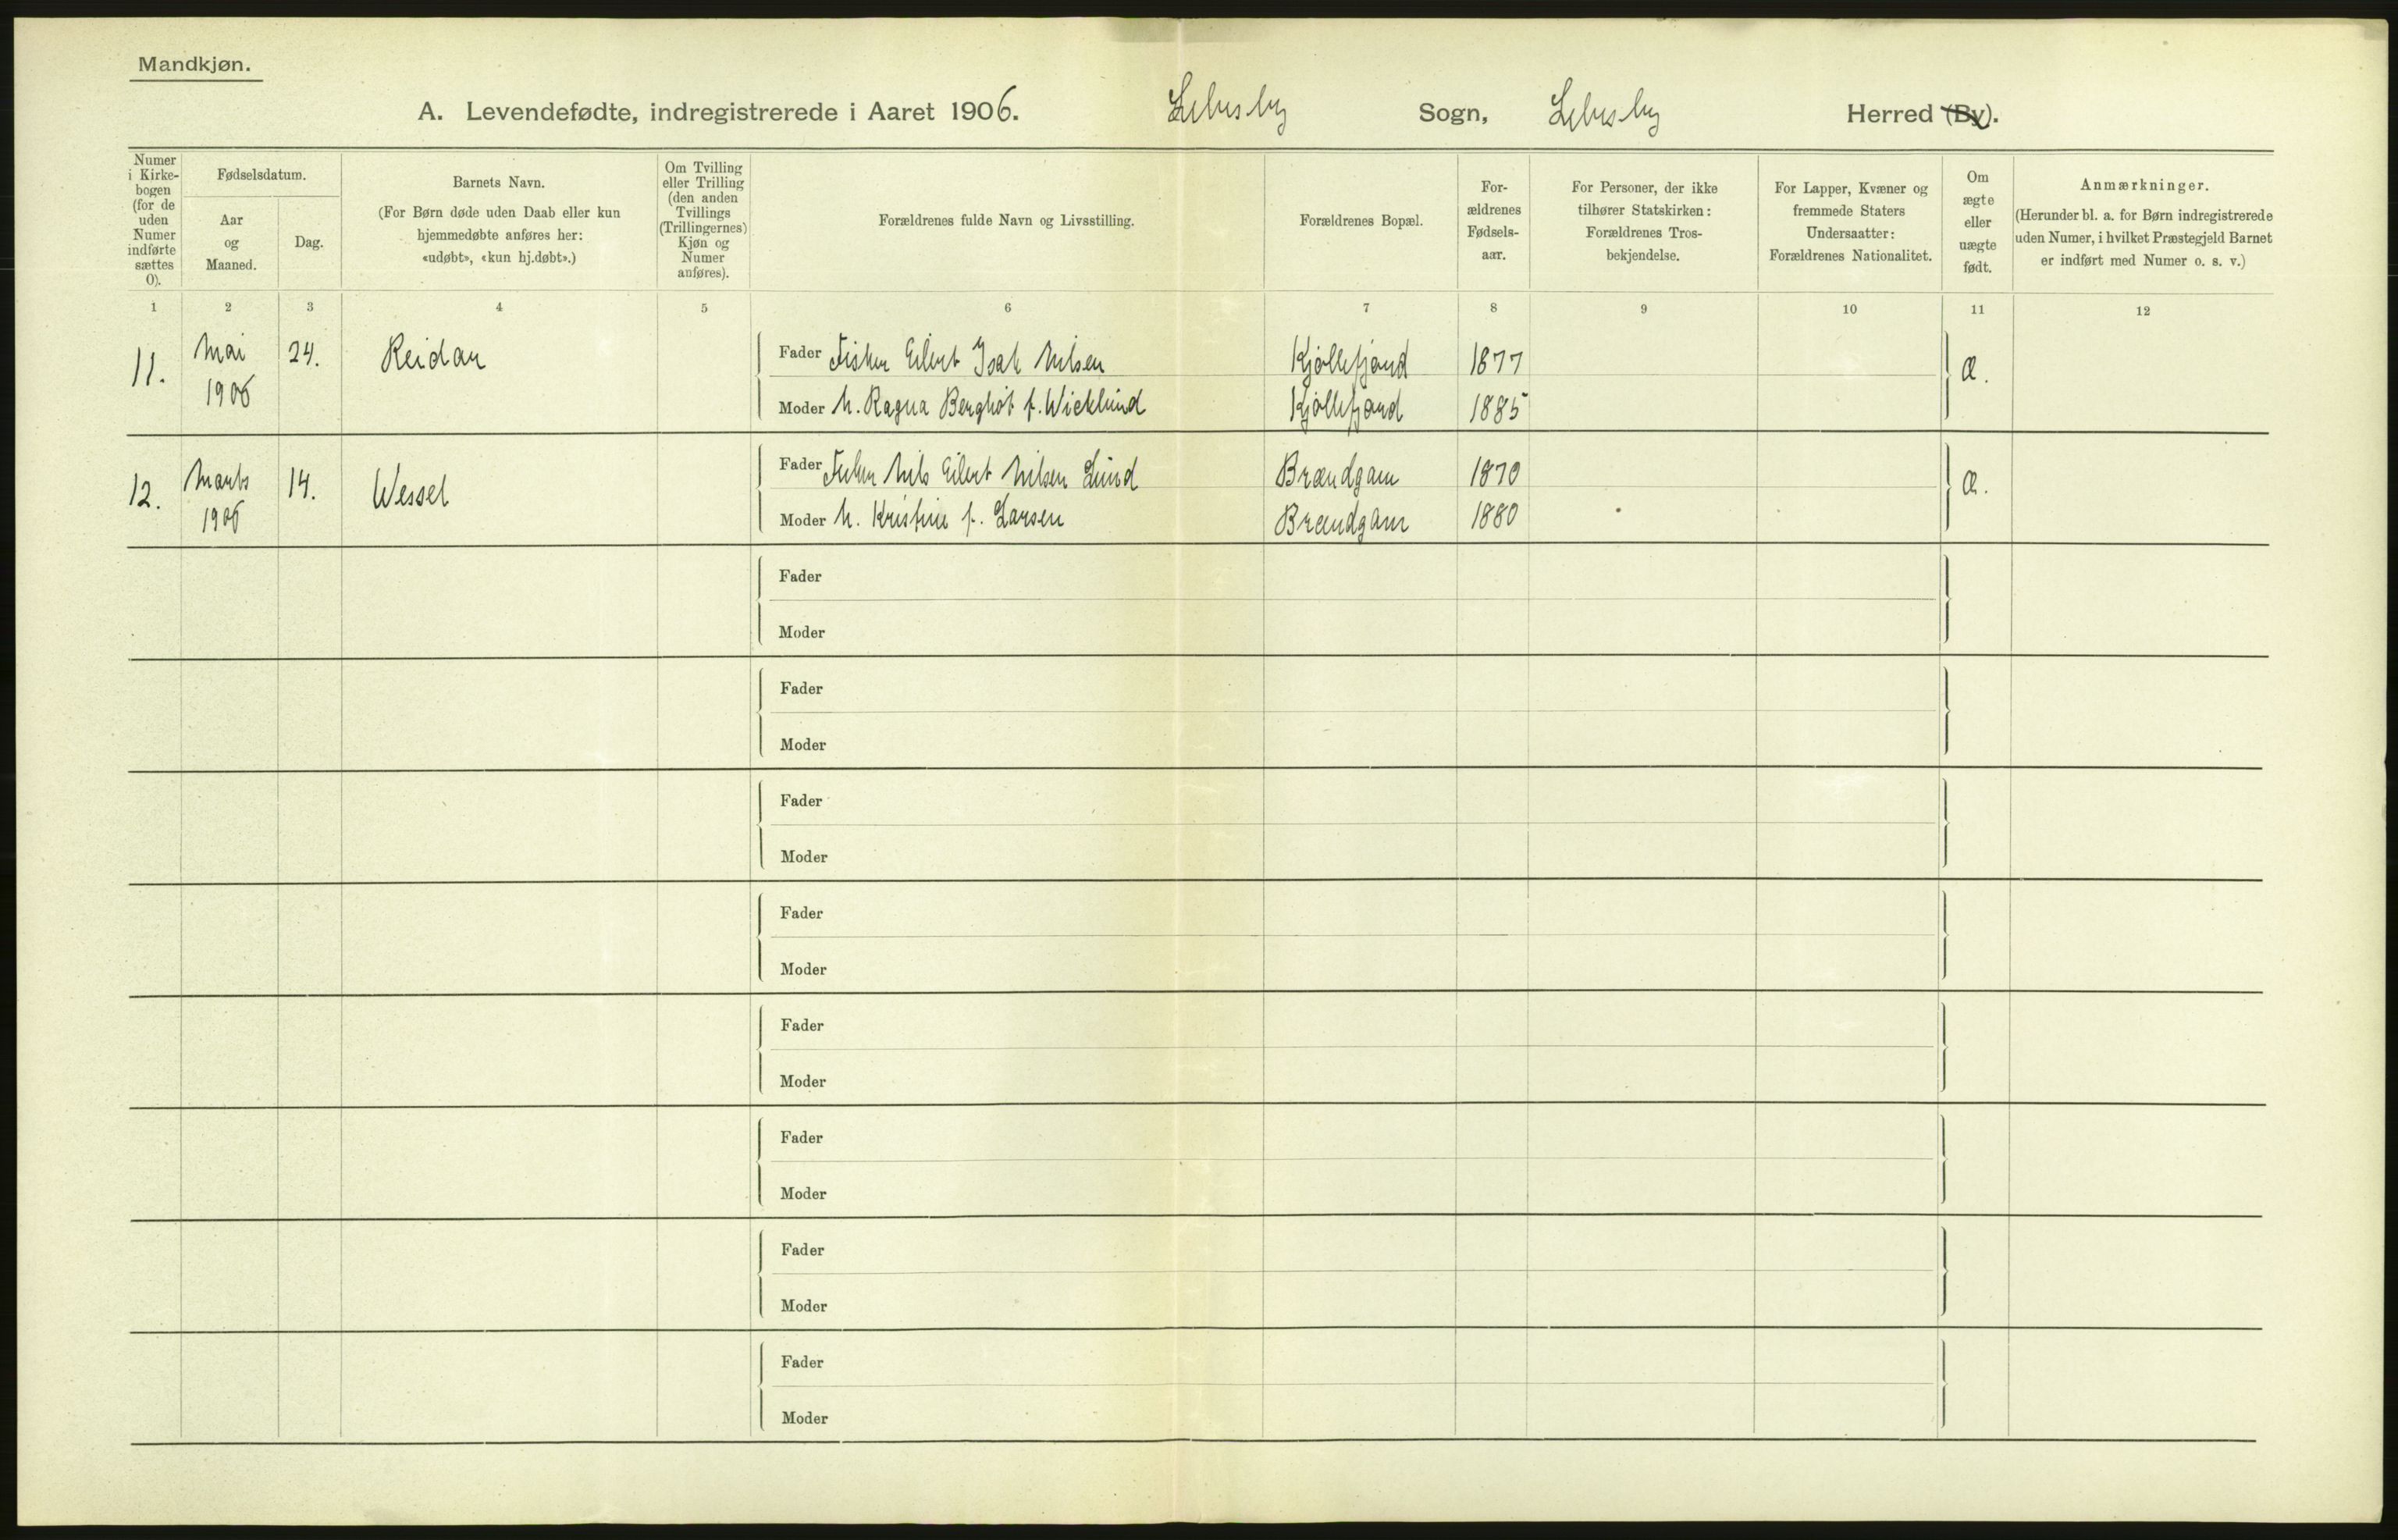 Mandkjøn.
A. Levendefødte, indregistrerede i Aaret 1906. Lebesby Sogn, Lebesby Herred (By).
Numer i Kirkebogen (for de uden Numer indførte sættes 0).
Fødselsdatum.
Aar og Maaned.
Dag.
Barnets Navn.
(For Børn døde uden Daab eller kun
hjemmedøbte anføres her:
«udøbt», «kun hj.døbt».)
Om Tvilling
eller Trilling
(den anden
Tvillings
(Trillingernes)
Kjøn og
Numer
anføres).
Forældrenes fulde Navn og Livsstilling.
Forældrenes Bopæl.
For-
ældrenes
Fødsels-
aar.
For Personer, der ikke
tilhører Statskirken:
Forældrenes Tros-
bekjendelse.
For Lapper, Kvæner og
fremmede Staters
Undersaatter:
Forældrenes Nationalitet.
Om
ægte
eller
uægte
født.
Anmærkninger.
(Herunder bl. a. for Børn indregistrerede
uden Numer, i hvilket Præstegjeld Barnet
er indført med Numer o. s. v.)
1 2 3 4 5 6 7 8 9 10 11 12
11. Mai 1906 24. Reidar
Fader Fisker Eilert Isak Nilsen Kjøllefjord 1877 Æ.
Moder h. Ragna Berghot f. Wicklund Kjøllefjord 1885
12. Marts 1906 14. Wessel
Fader Fisker Nils Eilert Nilsen Lund Brændgam 1870 Æ.
Moder h. Kristine f. Larsen Brændgam 1880
Fader
Moder
Fader
Moder
Fader
Moder
Fader
Moder
Fader
Moder
Fader
Moder
Fader
Moder
Fader
Moder